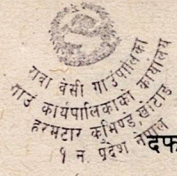 रावा वेसी गाउँपालिका
गाउँ कार्यपालिकाको कार्यालय
हरमटार कभिण्डे, खोटाङ
१ न. प्रदेश नेपाल
दफ